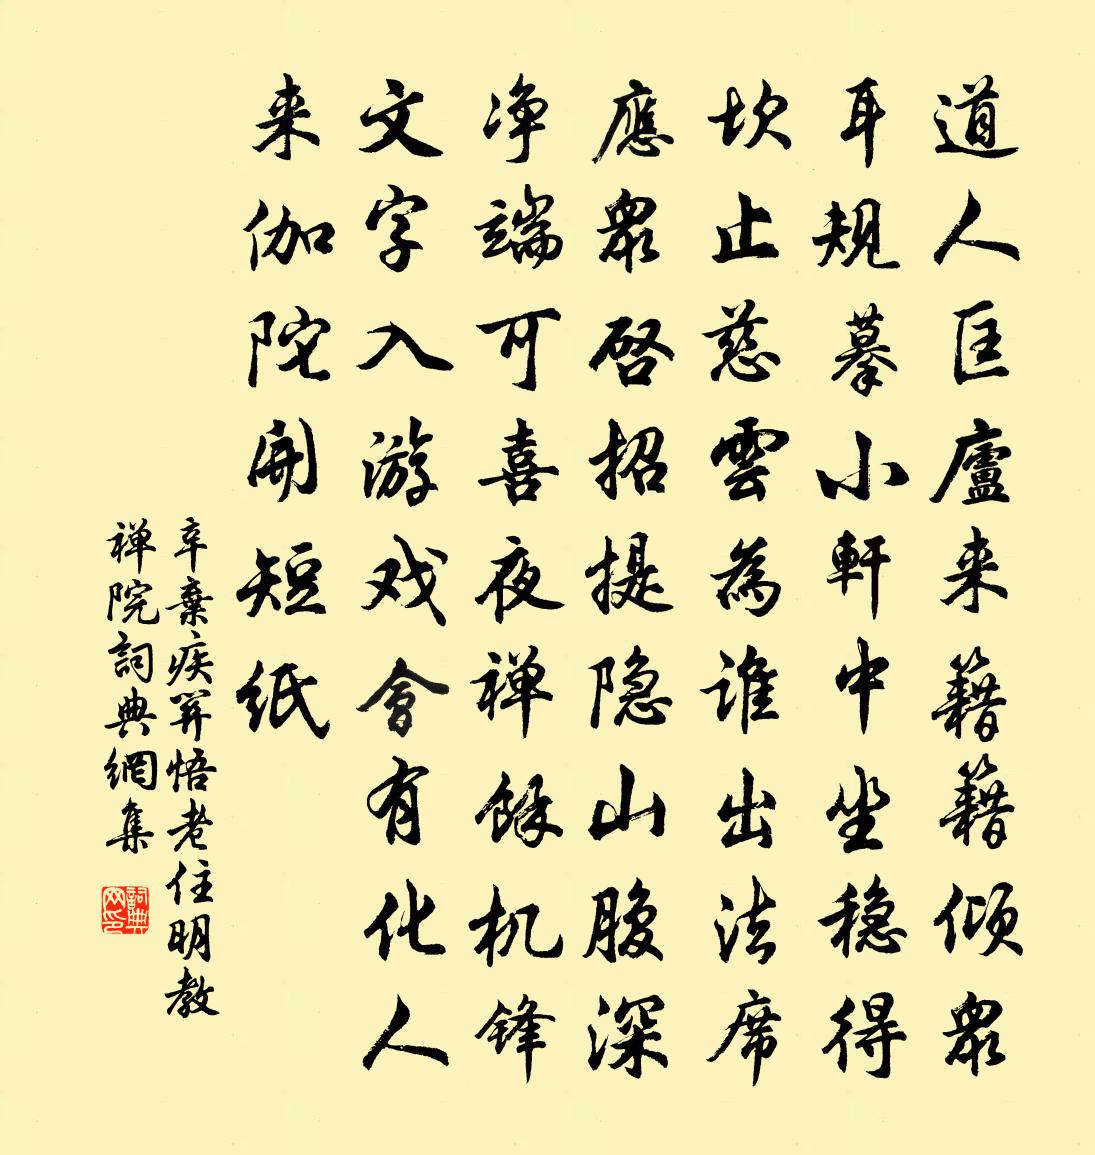 道人匡廬来籍籍倾眾
耳規摹小軒中坐稳得
坎止慈雲為谁出法席
應眾启招提隐山腹深
净端可喜夜禅餘机锋
文字入游戏會有化人
来伽陀開短纸
辛棄疾開悟老住明教
禅院詞典網集
詞典
网印